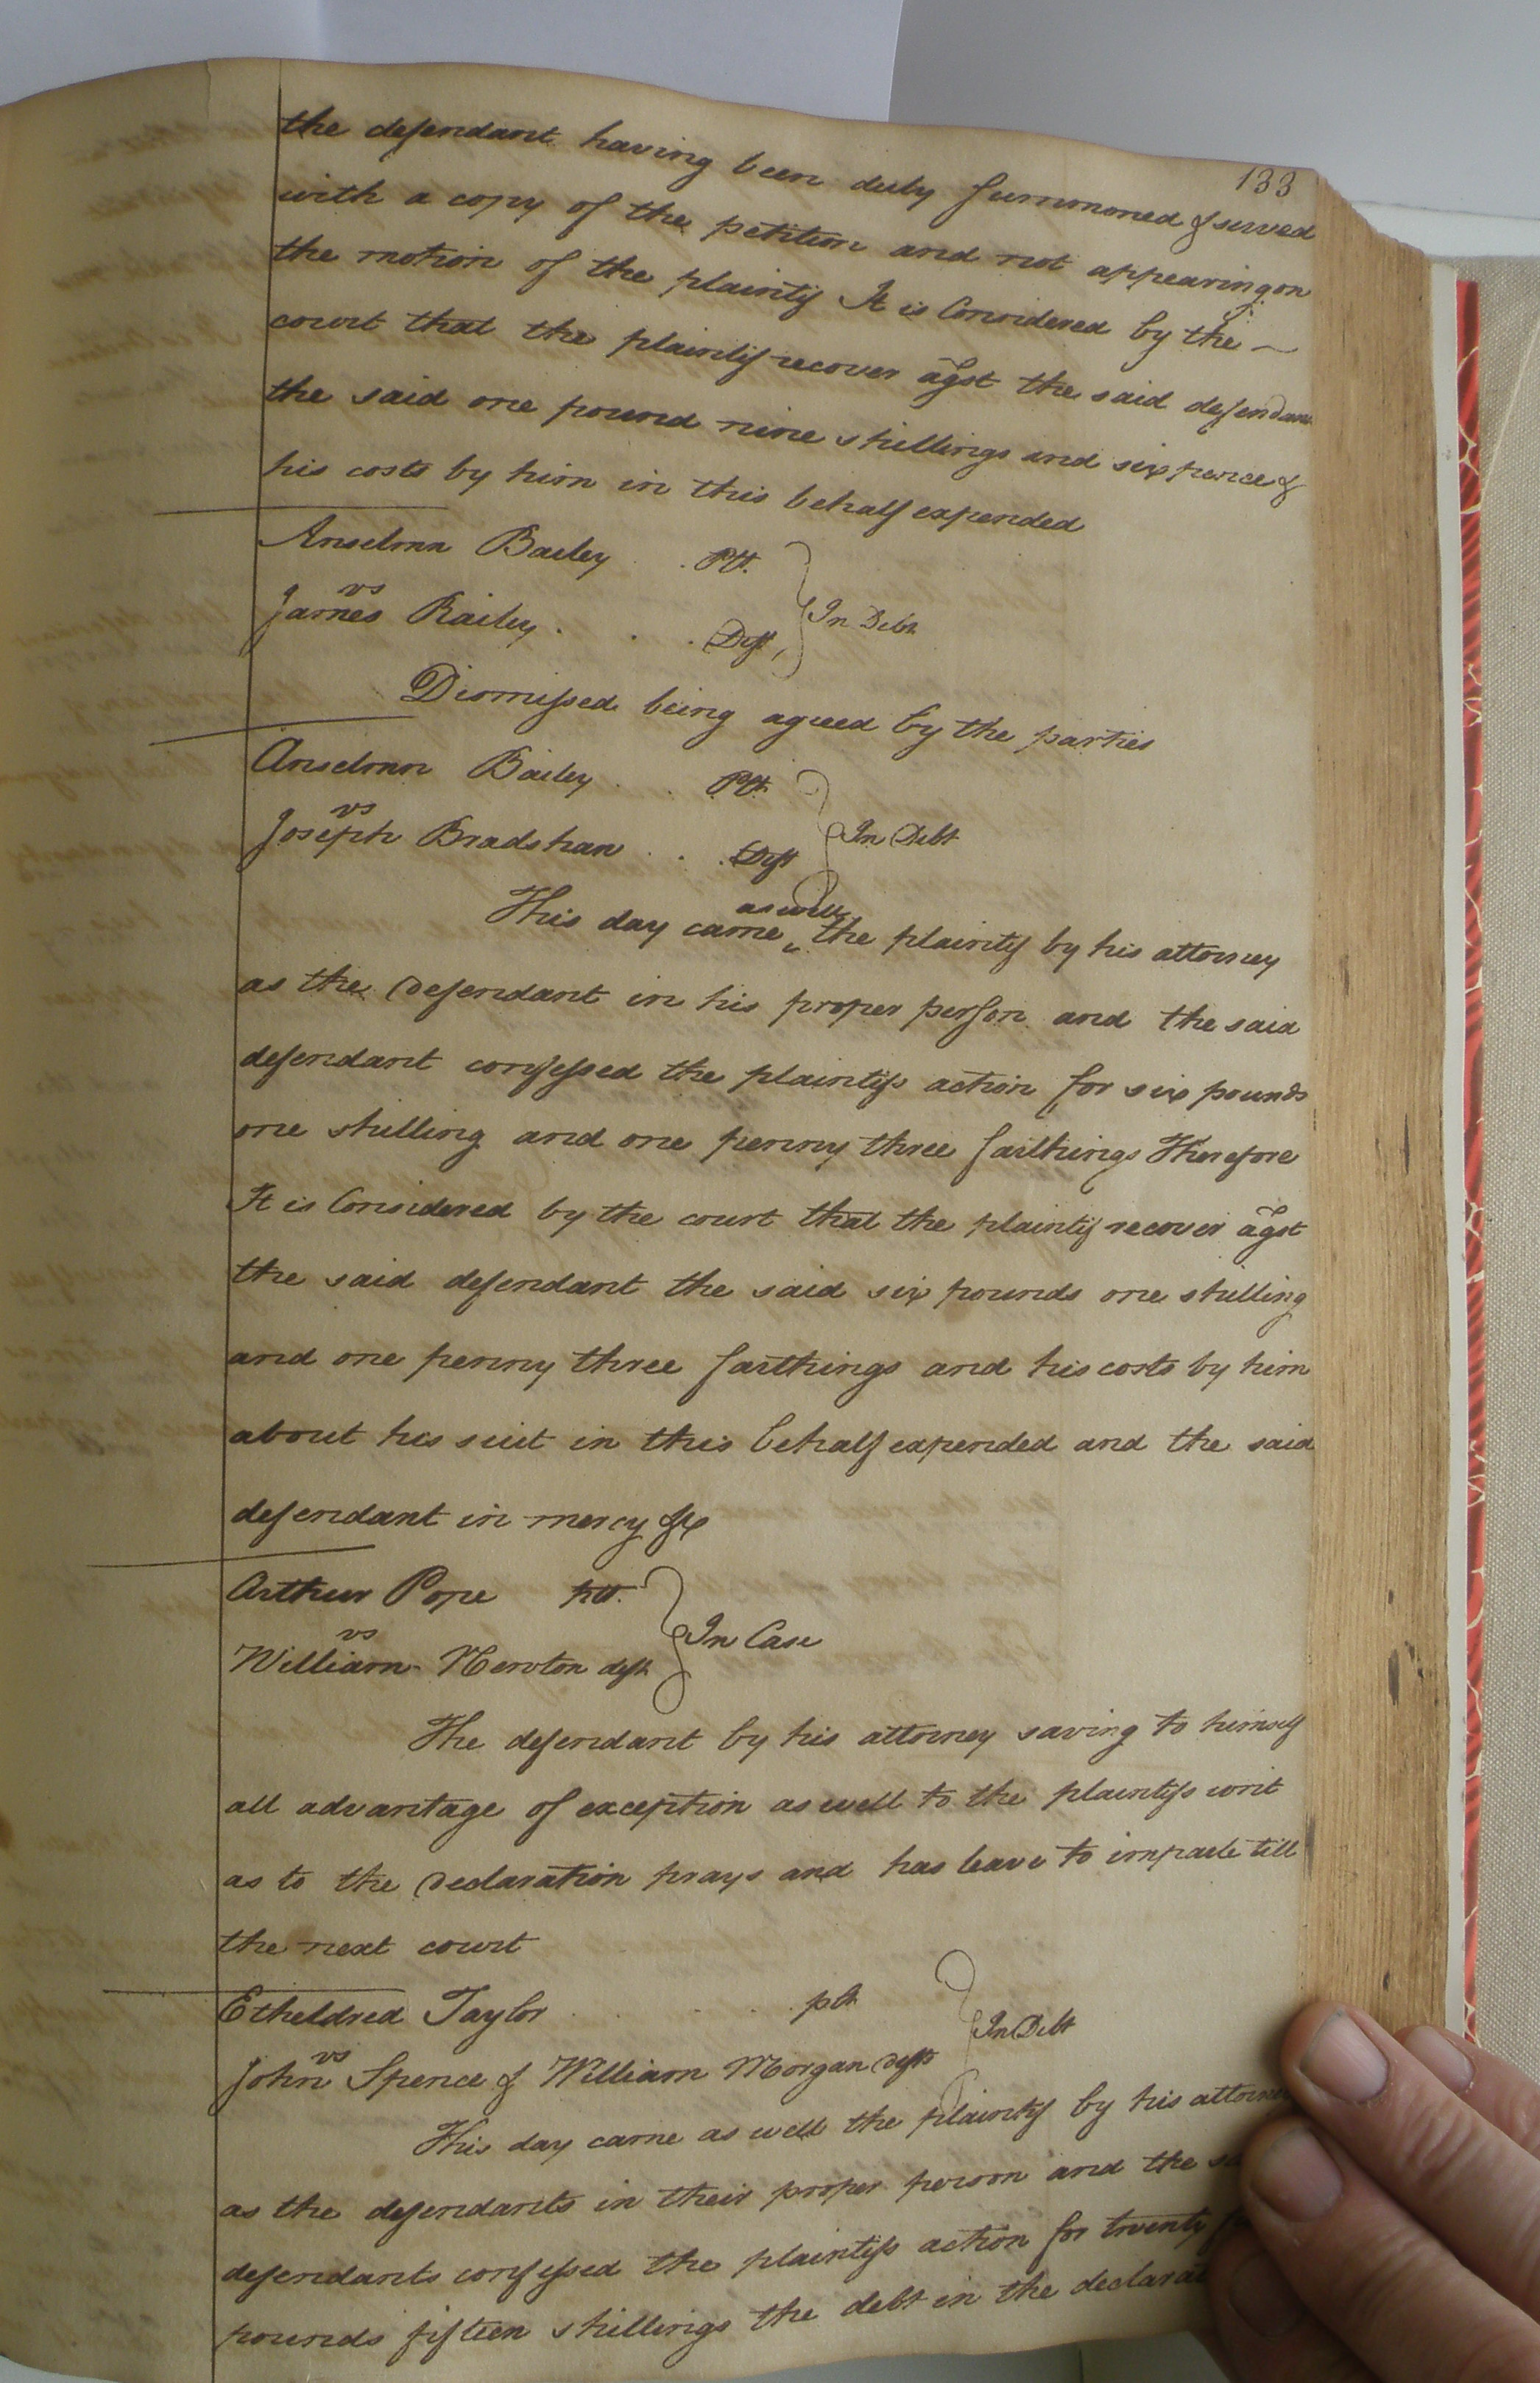 133
the defendant having been duly summoned & served
with a copy of the petition and not appearing on
the motion of the plaintif It is Considered by the
court that the plaintif recover agst the said defendant
the said one pound nine shillings and six pence &
his costs by him in this behalf expended
Anselmn Bailey . . Plt.
vs
James Bailey . . . Deft,
In Debt
Dismissed being agreed by the parties
Anselmn Bailey . . Plt
vs
Joseph Bradshaw . . . Deft
In Debt
This day came as well the plaintif by his attorney
as the Defendant in his proper person and the said
defendant confessed the plaintifs action for six pounds
one shilling and one penny three farthings Therefore
It is Considered by the court that the plaintif recover agst
the said defendant the said six pounds one shilling
and one penny three farthings and his costs by him
about his suit in this behalf expended and the said
defendant in mercy &c
Arthur Pope plt.
vs
William Newton deft
In Case
The defendant by his attorney saving to himself
all advantage of exception as well to the plaintifs writ
as to the Declaration prays and has leave to imparle till
the next court
Etheldred Taylor . . . . plt
vs
John Spence & William Morgan Defts
In Debt
This day came as well the plaintif by his attorne
as the defendants in their proper person and the
defendants confessed the plaintifs action for twenty
pounds fifteen shillings the debt in the declarat